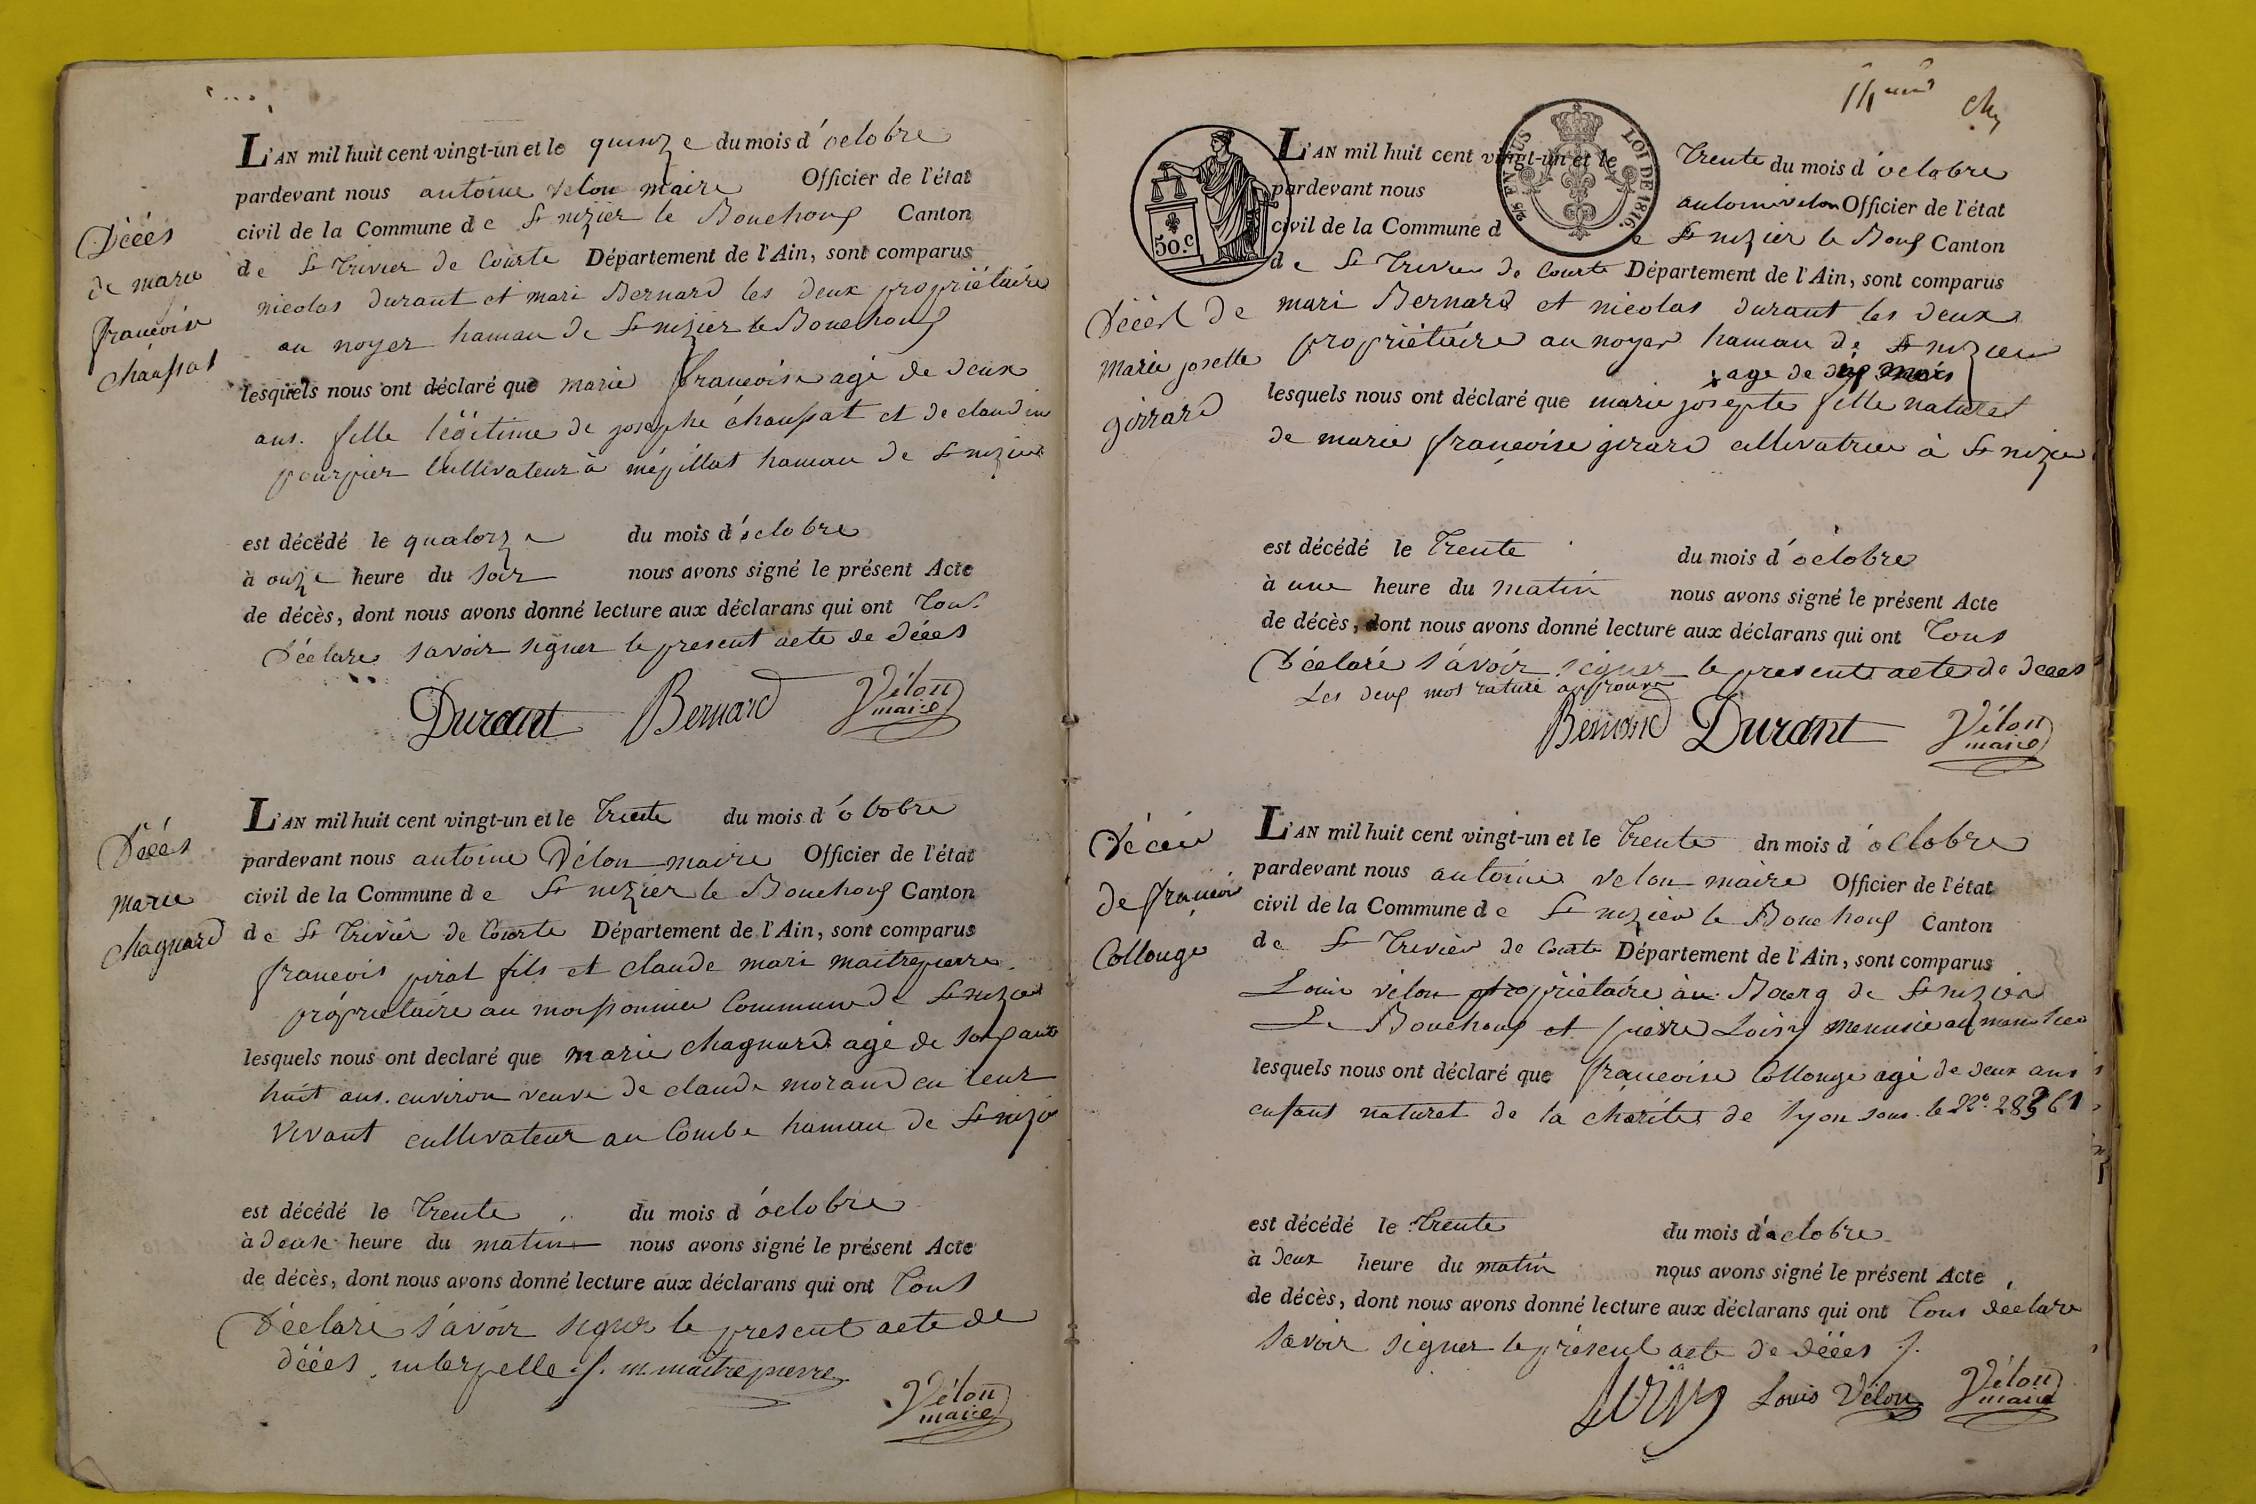 Décés
de marie
françoise
chaussat
L'AN mil huit cent vingt-un et le quinze du mois d'octobre
pardevant nous antoine velon maire Officier de l'état
civil de la Commune de St nizier le Bouchoux Canton
de St Trivier de Courte Département de l'Ain, sont comparus
nicolas durant et mari Bernard les deux propriétaire
au noyer hamau de St nizier le Bouchoux
lesquels nous ont déclaré que marie françoise agé de deux
ans. fille légitime de josephe chaussat et de claudine
pourpier Cultivateur à mépillat hamau de St nizier
est décédé le quatorze du mois d'octobre
à onze heure du soir nous avons signé le présent Acte
de décès, dont nous avons donné lecture aux déclarans qui ont Tous
Déclaré savoir signer le present acte de décés
Durant Bernard Vélon
maire
Décés
marie
chagnard
L'AN mil huit cent vingt-un et le Trente du mois d'octobre
pardevant nous antoine Vélon maire Officier de l'état
civil de la Commune de St nizier le Bouchoux Canton
de St Trivier de Courte Département de l'Ain, sont comparus
francois pirat fils et claude mari maitrepierre
propriétaire au Commune de St nizier
lesquels nous ont declaré que marie chagnard agé de soixante
huit ans. environ veuve de claude morand en leur
vivant cultivateur au Combe hamau de St nizie
est décédé le Trente du mois d'octobre
à deux heure du matin nous avons signé le présent Acte
de décès, dont nous avons donné lecture aux déclarans qui ont Tous
Déclaré savoir signer le present acte de
décés. interpelle. m maitrepierre
Vélon
maire
50.c
EN SUS
LOI DE 1816.
Décés de
Marie josette
girrard
L'AN mil huit cent vingt-un et le Trente du mois d'octobre
pardevant nous antoine velon Officier de l'état
civil de la Commune de St nizier le Boux Canton
de St Trivier de Courte Département de l'Ain, sont comparus
mari Bernard et nicolas durant les deux
propriétaire au noyer hamau de St nizier
age de dix mois
lesquels nous ont déclaré que marie josepte fille naturel
de marie françoise girard cultivatrice à St nizier
est décédé le Trente du mois d'octobre
à une heure du matin nous avons signé le présent Acte
de décès, dont nous avons donné lecture aux déclarans qui ont Tous
Déclaré savoir signer le present acte de décés
Les deux mot raturé approuvé
Bernard Durant Vélon
maire
Décée
de françoise
Collonge
L'AN mil huit cent vingt-un et le Trente dn mois d'octobre
pardevant nous antoine velon maire Officier de l'état
civil de la Commune de St nizier le Bouchoux Canton
de St Trivier de Courte Département de l'Ain, sont comparus
Louis vélon propriétaire au Bourg de St nizier
Le Bouchoux et pierre Loisy menusie au
lesquels nous ont déclaré que françoise Collonge agé de deux ans
enfant naturel de la charité de lyon sous le
est décédé le Trente du mois d'octobre
à deux heure du matin nous avons signé le présent Acte
de décès, dont nous avons donné lecture aux déclarans qui ont Tous déclaré
savoir signer le présent acte de décés
Loisy Louis Vélon Vélon
maire